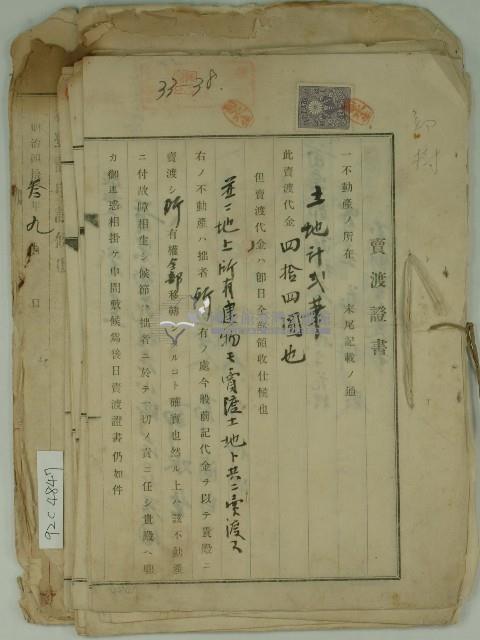 33-38.
賣渡證書
一不動產ノ所在 末尾記載ノ通
土地計弐筆
此賣渡代金 四拾四圓也
但賣渡代金ハ即日全部領收仕候也
並ニ地上所有建物モ賣渡土地ト共ニ賣渡ス
右ノ不動產ハ拙者所有ノ處今般前記代金ヲ以テ貴殿ニ
賣渡シ所有權全部移轉シタルコト確實也然ル上ハ該不動產
ニ付故障相生シ候節ハ拙者ニ於テ一切ノ責ニ任シ貴殿ヘ聊
カ御迷惑相掛ケ申間敷候爲後日賣渡證書仍如件
明治四拾叁年九
92C4847